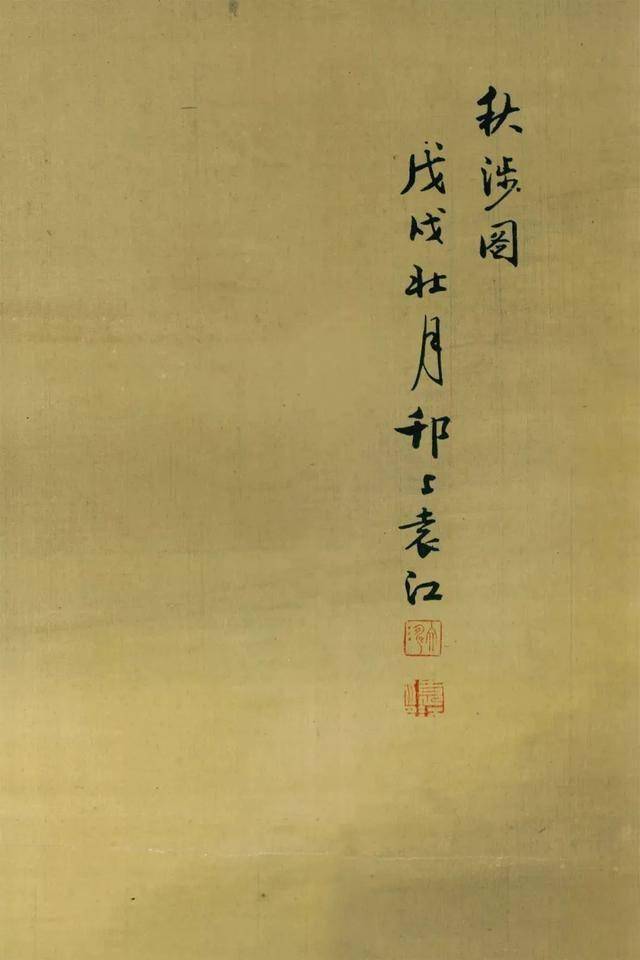 秋涉图
戊戌壮月邗上袁江